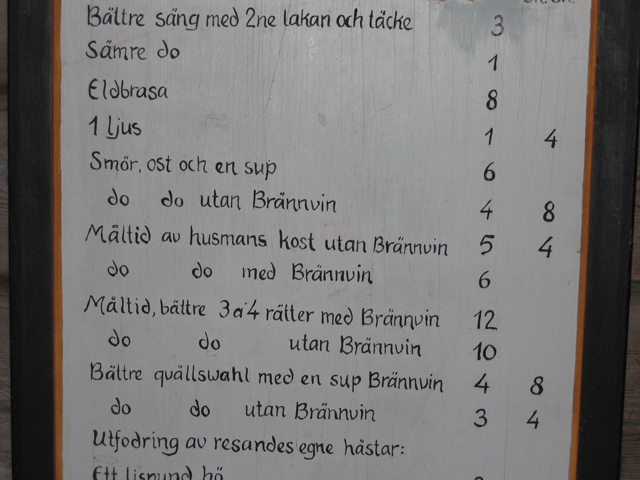 Bättre säng med 2ne lakan och täcke 3
Sämre do 1
Eldbrasa 8
1 ljus 1 4
Smör, ost och en sup 6
do do utan Brännvin 4 8
Måltid av husmans kost utan Brännvin 5 4
do do med Brännvin 6
Måltid, bättre 3 a' 4 rätter med Brännvin 12
do do utan Brännvin 10
Bättre quällswahl med en sup Brännvin 4 8
do do utan Brännvin 3 4
Utfodring av resandes egne hästar:
Ett lispund hö